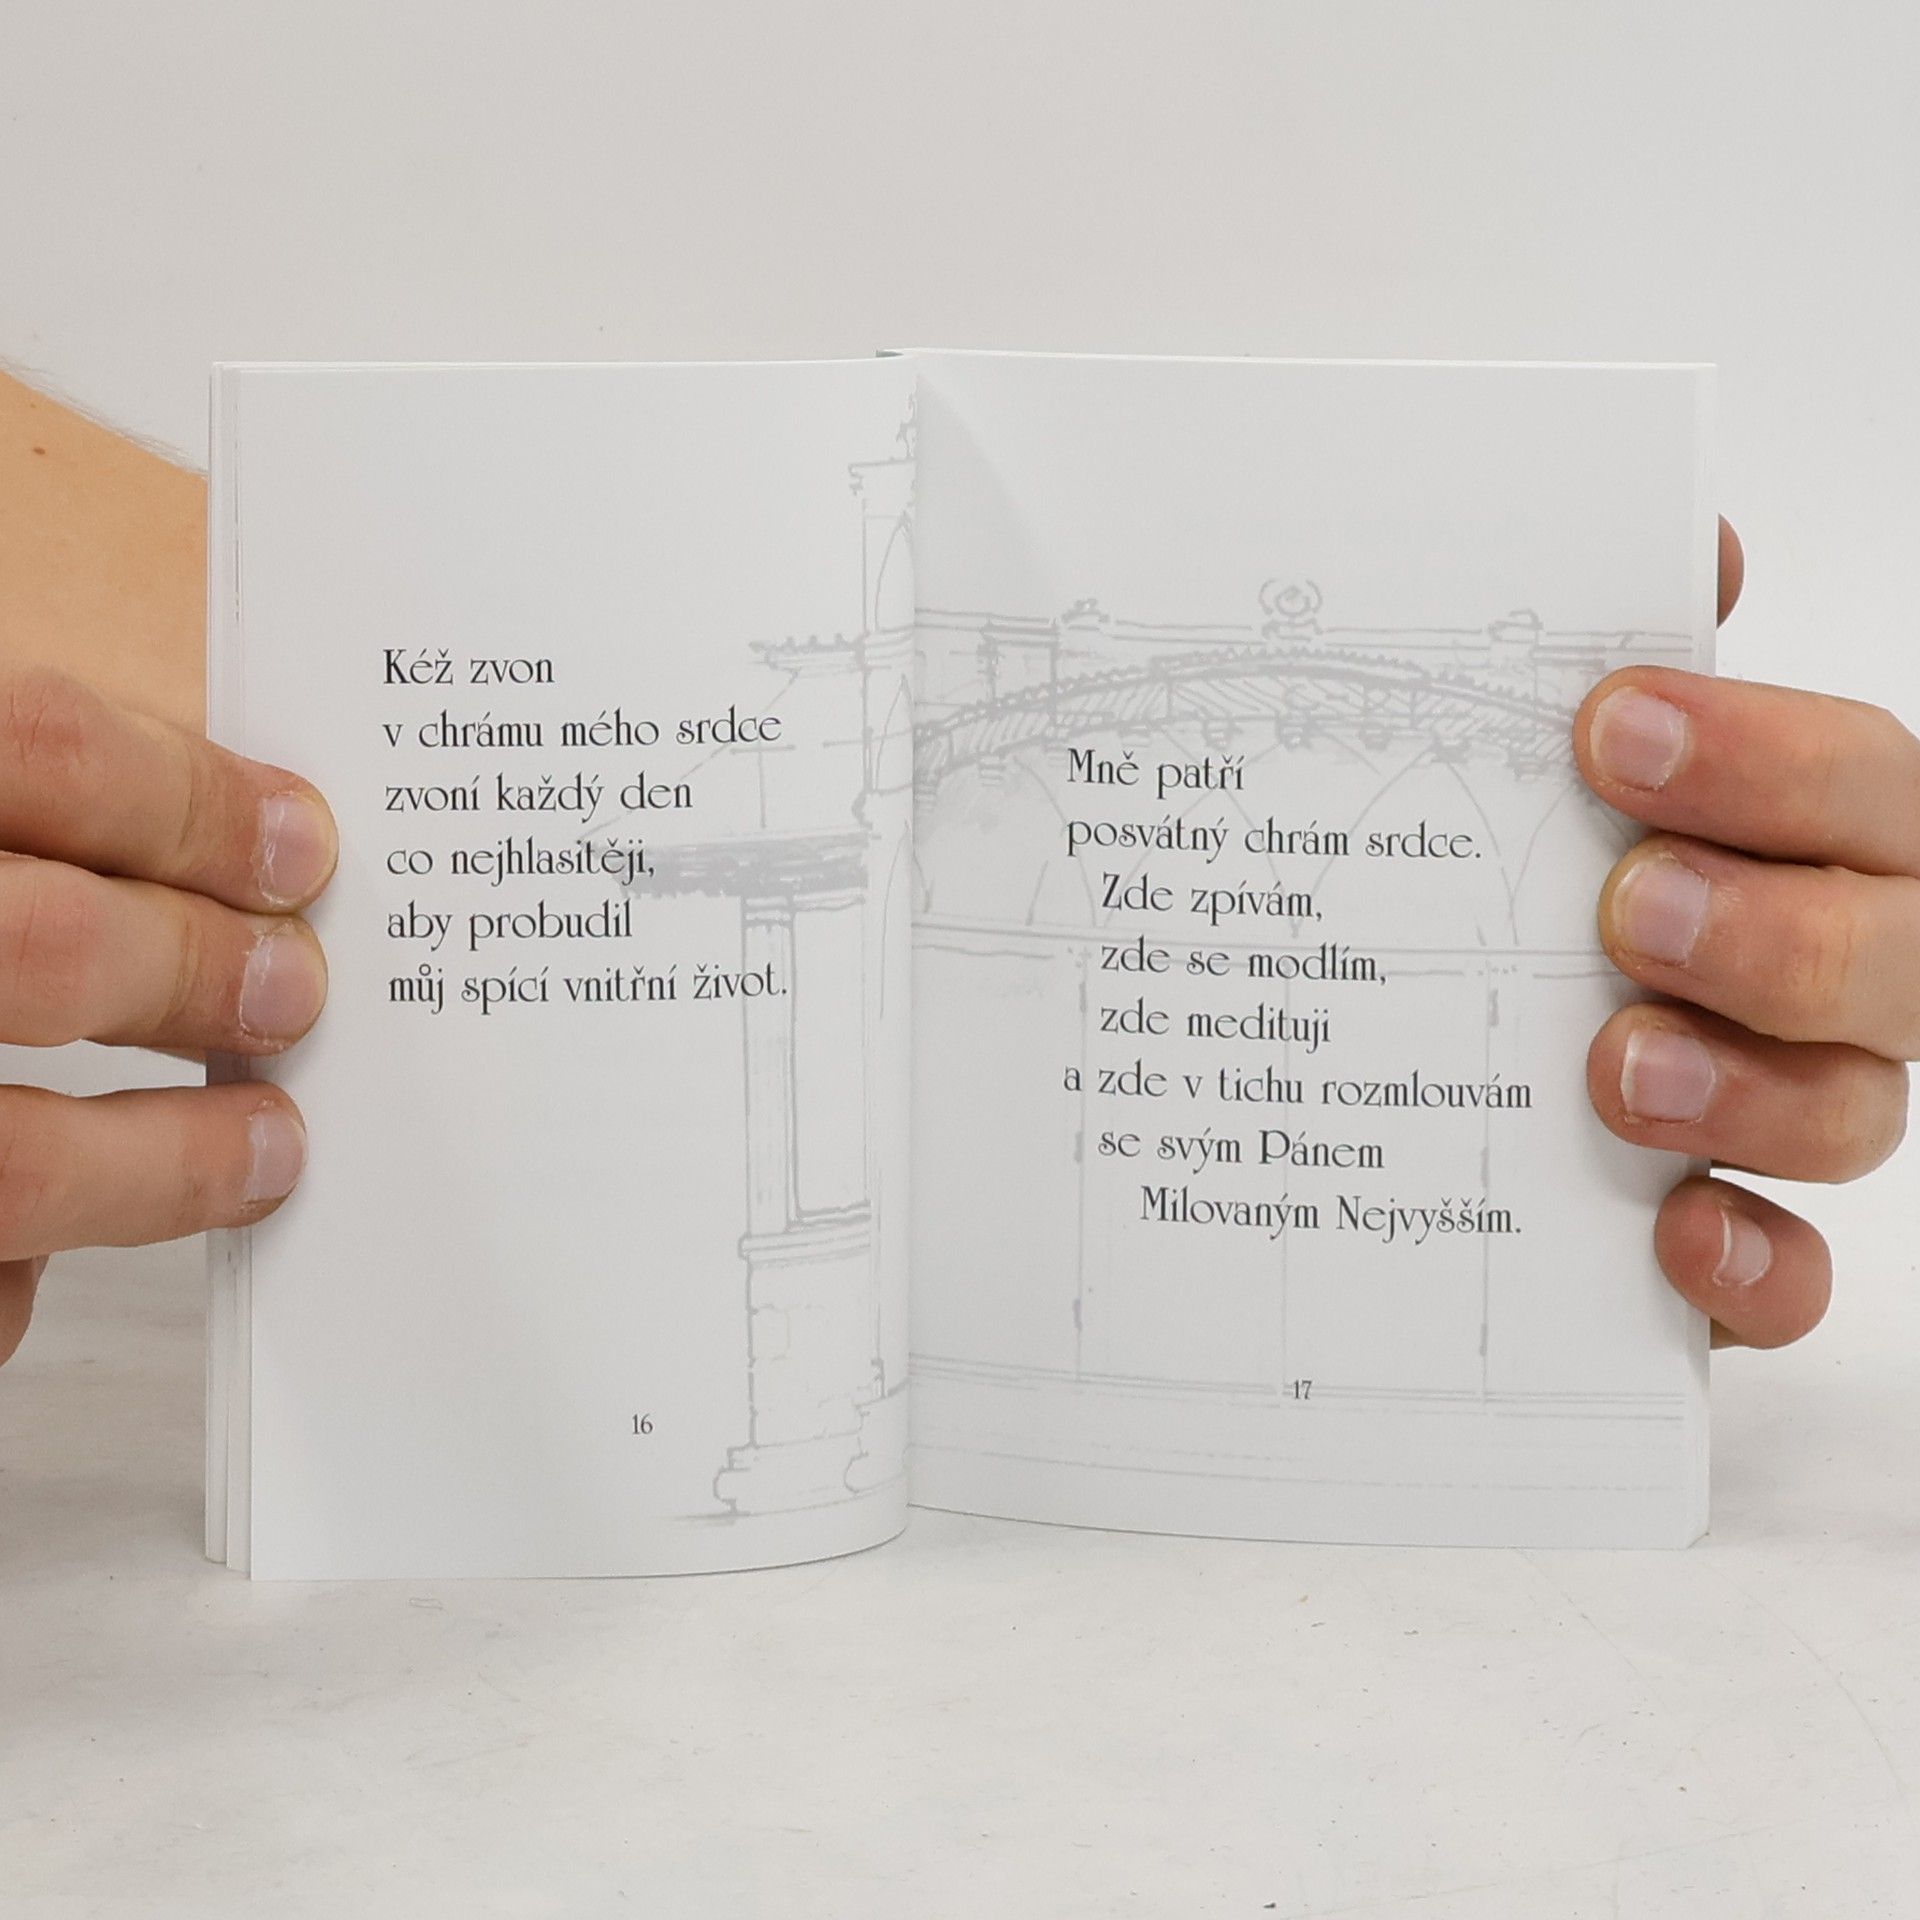 Kéž zvon
v chrámu mého srdce
zvoní každý den
co nejhlasitěji,
aby probudil
můj spící vnitřní život.
16
Mně patří
posvátný chrám srdce.
Zde zpívám,
zde se modlím,
zde medituji
a zde v tichu rozmlouvám
se svým Pánem
Milovaným Nejvyšším.
17